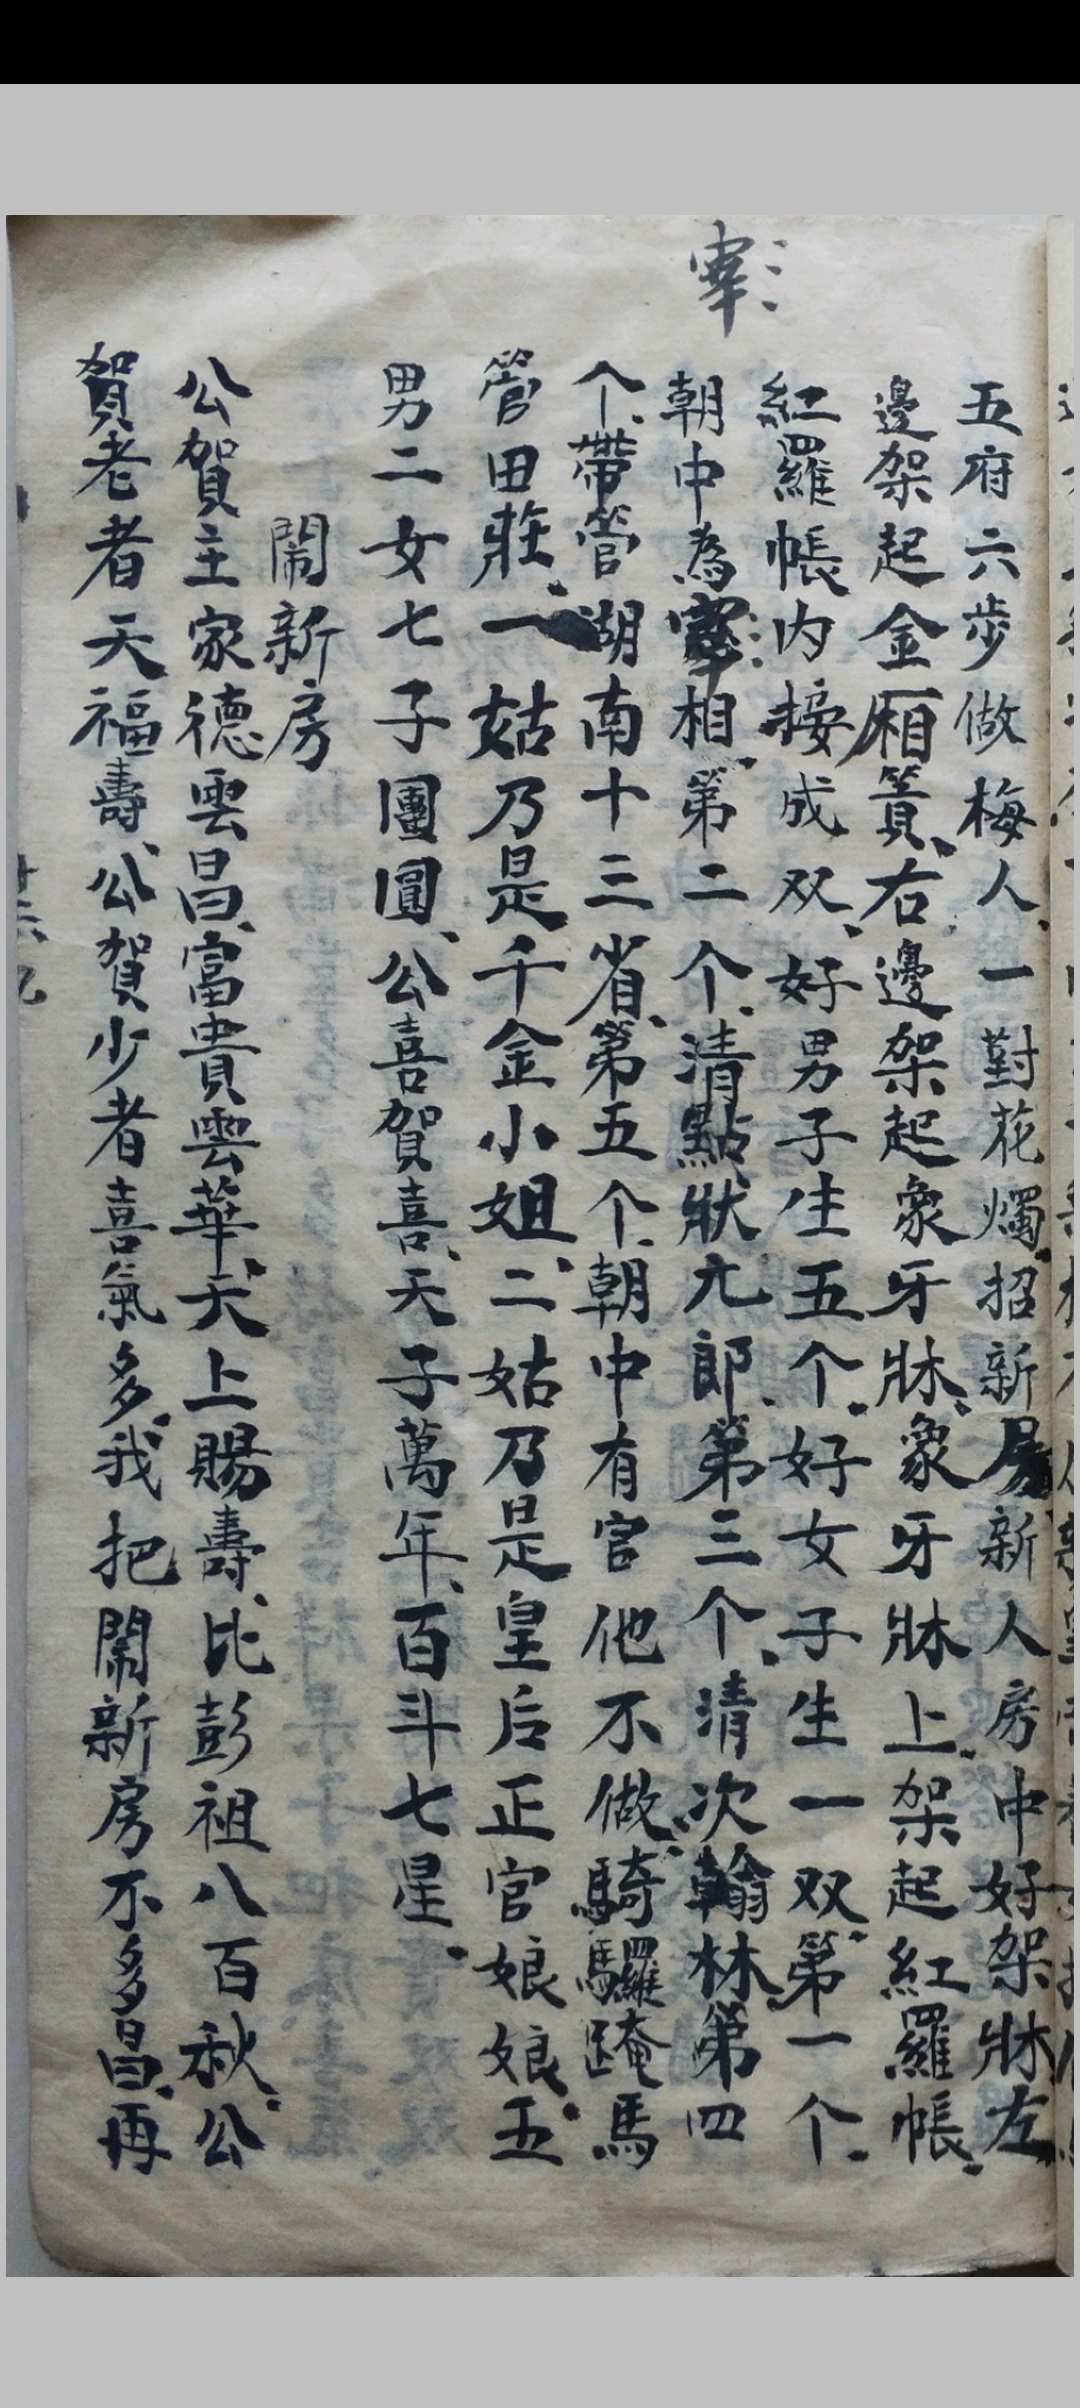 宰
五府六步做梅人、一對花燭、招新房新人房中好架牀左
邊架起金厢簀、右邊架起象牙牀、象牙牀上架起紅羅帳、
紅羅帳內接成双、好男子生五个、好女子生一双、第一个、
朝中為宰相、第二个、清點狀元郎、第三个、清次翰林、第四
个、帶管湖南十三省、第五个、朝中有官他不做、騎騾踦馬
管田莊、一姑乃是千金小姐、二姑乃是皇后正官娘娘、五
男二女七子團圓、公喜賀喜、天子萬年、百斗七星、
鬧新房
公賀主家德雲昌、富貴雲華、天上賜壽、比彭祖八百秋、公
賀老者天福壽、公賀少者喜氣多、我把鬧新房不多昌、再